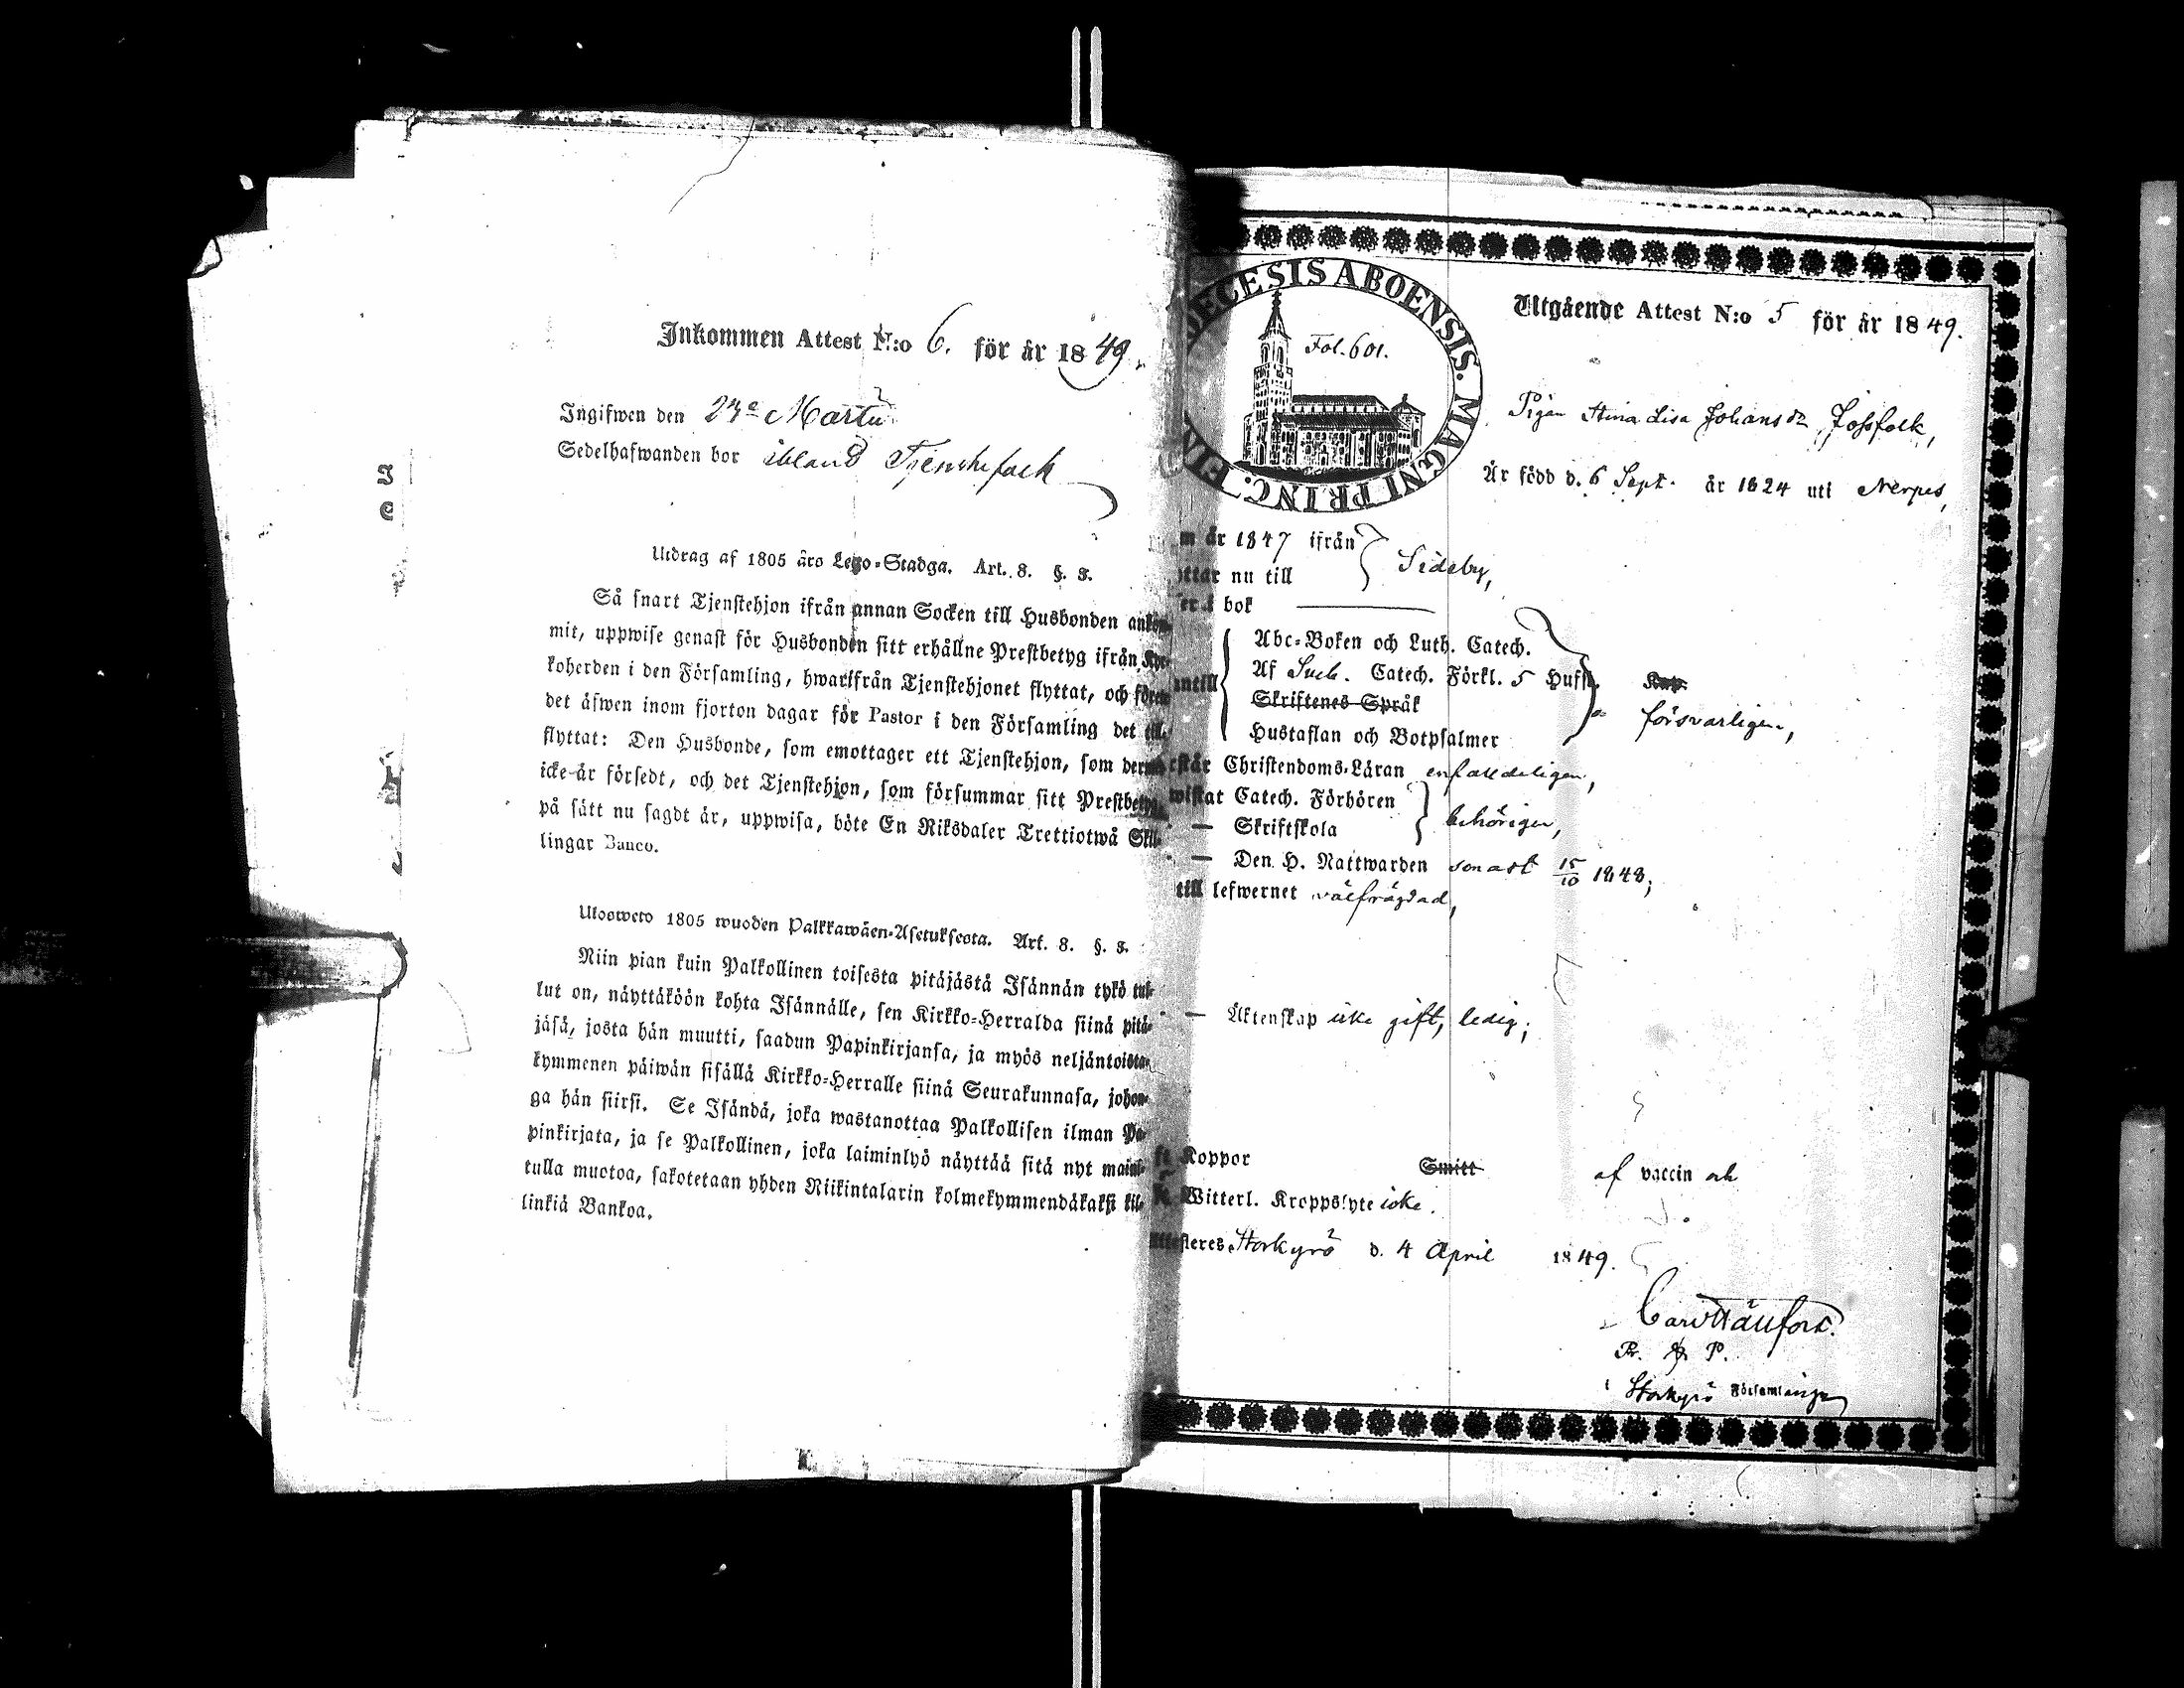 Inkommen Attest N:o 6. för år 1849.
Ingifwen den 23e Martii
Sedelhafwanden bor ibland Tjenstefolk
Utdrag af 1805 års Lego-Stadga. Art. 8. §. 3.
Så snart Tjenstehjon ifrån annan Socken till Husbonden ankom-
mit, uppwise genast för Husbonden sitt erhållne Prestbetyg ifrån Kyr-
koherden i den Församling, hwarifrån Tjenstehjonet flyttat, och förete
det äfwen inom fjorton dagar för Pastor i den Församling det till-
flyttat: Den Husbonde, som emottager ett Tjenstehjon, som dermed
icke är försedt, och det Tjenstehjon, som försummar sitt Prestbetyg,
på sätt nu sagdt är, uppwisa, böte En Riksdaler Trettiotwå Skil-
lingar Banco.
Uloosweto 1805 wuoden Palkkawäen-Asetuksesta. Art. 8. §. 3.
Niin pian kuin Palkollinen toisesta pitäjästä Isännän tykö tul-
lut on, näyttäköön kohta Isännälle, sen Kirkko-Herralda siinä pitä-
jäsä, josta hän muutti, saadun Papinkirjansa, ja myös neljäntoista-
kymmenen päiwän sisällä Kirkko-Herralle siinä Seurakunnasa, johon-
ga hän siirsi. Se Isändä, joka wastanottaa Palkollisen ilman Pa-
pinkirjata, ja se Palkollinen, joka laiminlyö näyttää sitä nyt maini-
tulla muotoa, sakotetaan yhden Riikintalarin kolmekymmendäkaksi kil-
linkiä Bankoa.
I
DECESIS ABOENSIS. MAGNI PRINC. FIN
Fol. 601.
Utgående Attest N:o 5 för år 1849.
Pigan Stina Lisa Johansdr Jossfolk,
Är född d. 6 Sept. år 1824 uti Nerpes,
m år 1847 ifrån
ttar nu till
Sideby,
er i bok
Abc-Boken och Luth. Catech.
Af Sveb. Catech. Förkl. 5 Hufst.
antill
Skriftenes Språk
försvarligen,
Hustaflan och Botpsalmer
rstår Christendoms-Läran enfaldeligen,
wistat Catech. Förhören
— Skriftskola
behörigen,
— Den H. Nattwarden senast 15/10 1848;
till lefwernet välfrägdad,
— Äktenskap icke gift, ledig;
ft Koppor Smitt af vaccin och
Witterl. Kroppslyte icke.
Attesteres. Storkyrö d. 4 April 1849.
Pr. P.
i Storkyrö Församlingen